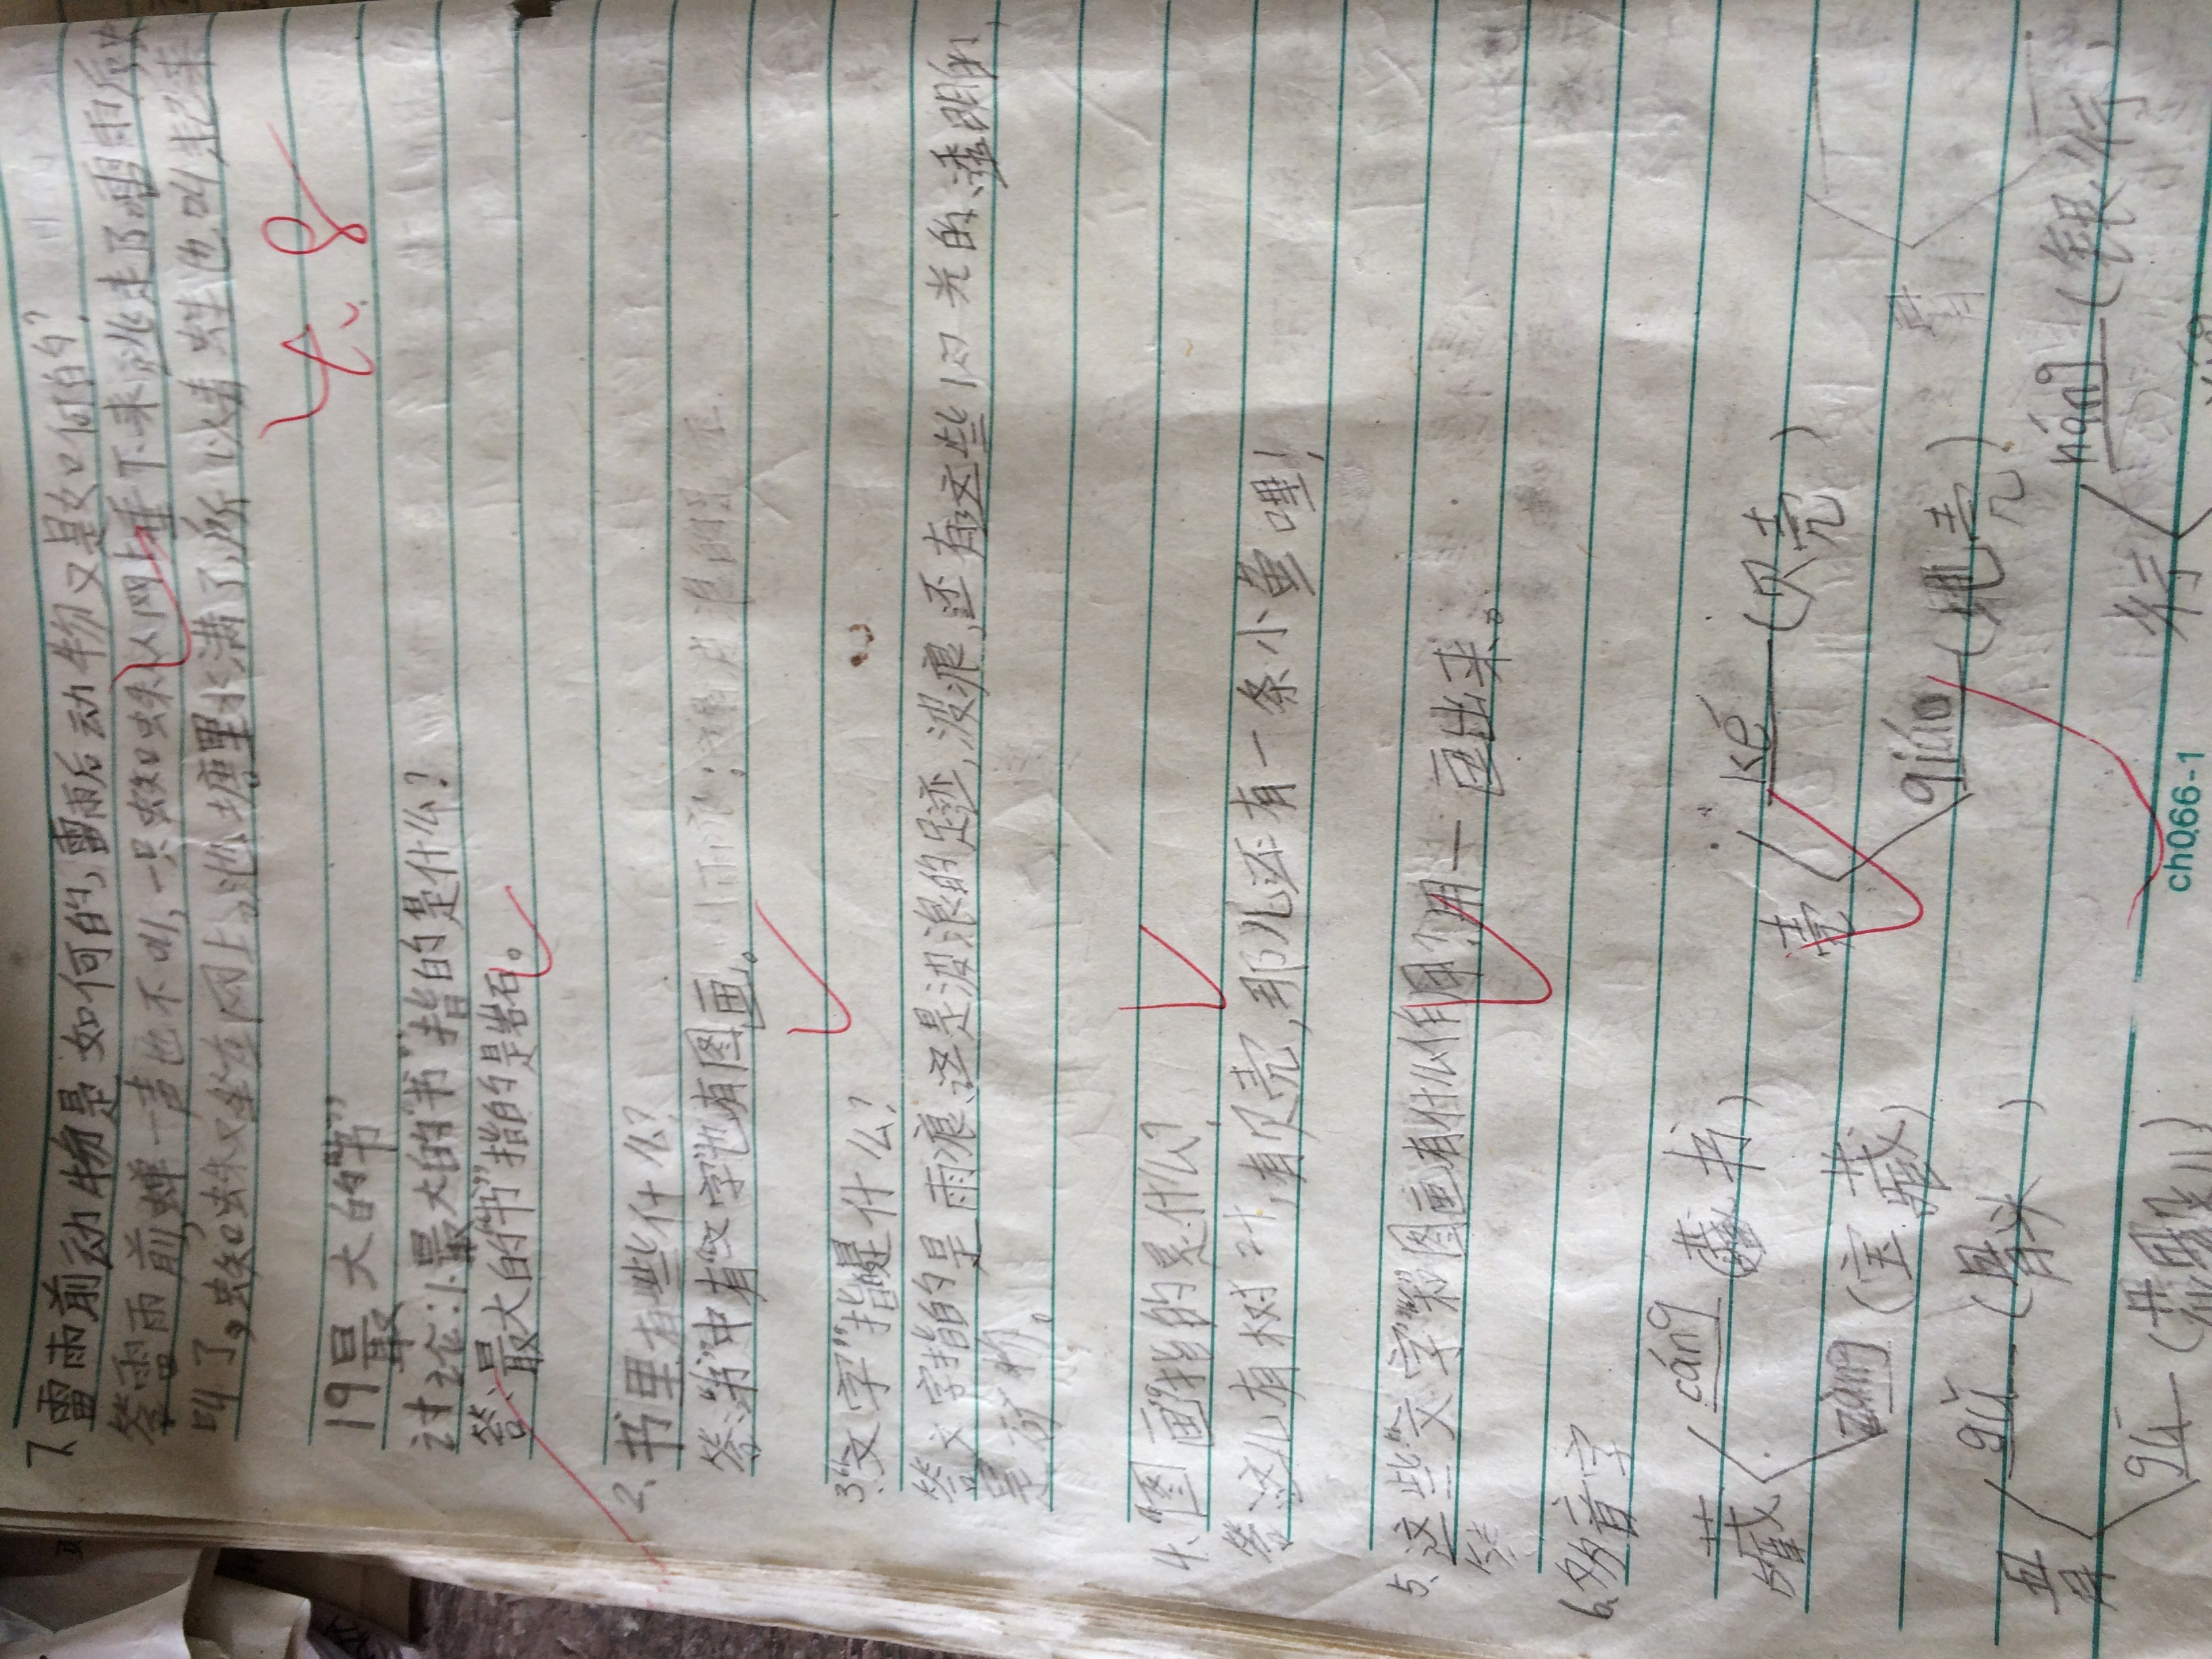 7、雷雨前动物是如何的,雷雨后动物又是如何的?
答雷雨前,蝉一声也不叫,一只蜘蛛从网上垂下来逃走了雷雨后
叫了。蜘蛛又坐在网上。池塘里水满了,所以青蛙也叫起来
19最大的"书"
讨论:1、最大的"书"指的是什么?
答:最大的"书"指的是岩石。
大、8
2、书里有些什么?
答:"书"中有"文字"也有图画。
3、"文字"指是什么?
答:文字指的是雨痕、还是波浪的足迹,波痕,还有这些闪光的、透明的、
是矿物。
4、"图画"指的是什么?
答:这儿有树叶,有贝壳,那儿还有一条小鱼哩!
5、这些"文字"和"图画有什么作用?用一画出来。
答:
6、多音字
藏 cáng (藏书)
zàng (宝藏)
壳 ké (贝壳)
qiào (地壳)
骨 gǔ (骨头)
gū (骨碌)
行 háng (银行)
ch066-1